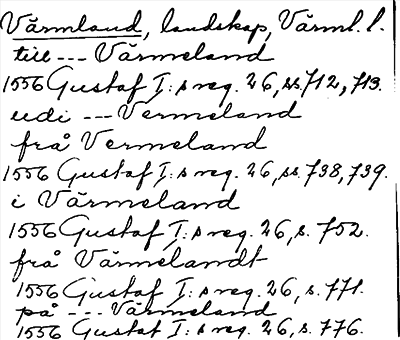 Värmland, landskap, Värml. l.
till --- Värmeland
1556 Gustaf I:s reg. 26, ss. 712, 713.
udi --- Vermeland
frå Vermeland
1556 Gustaf I:s reg. 26, ss. 738, 739.
i Värmeland
1556 Gustaf I:s reg. 26, s. 752.
frå Värmelandt
1556 Gustaf I:s reg. 26, s. 771.
på --- Värmeland
1556 Gustaf I:s reg. 26, s. 776.